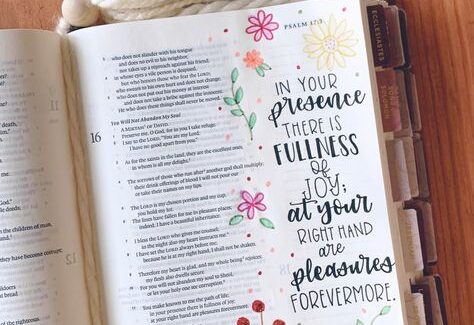 who does not slander with his tongue
and does no evil to his neighbor,
nor takes up a reproach against his friend;
in whose eyes a vile person is despised,
but who honors those who fear the LORD;
who swears to his own hurt and does not change;
who does not put out his money at interest
and does not take a bribe against the innocent.
He who does these things shall never be moved.
You Will Not Abandon My Soul
A MIKTAM OF DAVID.
16 Preserve me, O God, for in you I take refuge.
I say to the LORD, "You are my Lord;
I have no good apart from you."
As for the saints in the land, they are the excellent ones,
in whom is all my delight.
The sorrows of those who run after another god shall multiply;
their drink offerings of blood I will not pour out
or take their names on my lips.
The LORD is my chosen portion and my cup;
you hold my lot.
The lines have fallen for me in pleasant places;
indeed, I have a beautiful inheritance.
I bless the LORD who gives me counsel;
in the night also my heart instructs me.
I have set the LORD always before me;
because he is at my right hand, I shall not be shaken.
Therefore my heart is glad, and my whole being rejoices;
my flesh also dwells secure.
For you will not abandon my soul to Sheol,
or let your holy one see corruption.
You make known to me the path of life;
in your presence there is fullness of joy;
at your right hand are pleasures forevermore.
PSALM 17:3
IN YOUR
presence
THERE IS
FULLNESS
OF
JOY;
at your
RIGHT HAND
ARE
pleasures
FOREVERMORE.
ECCLESIASTES